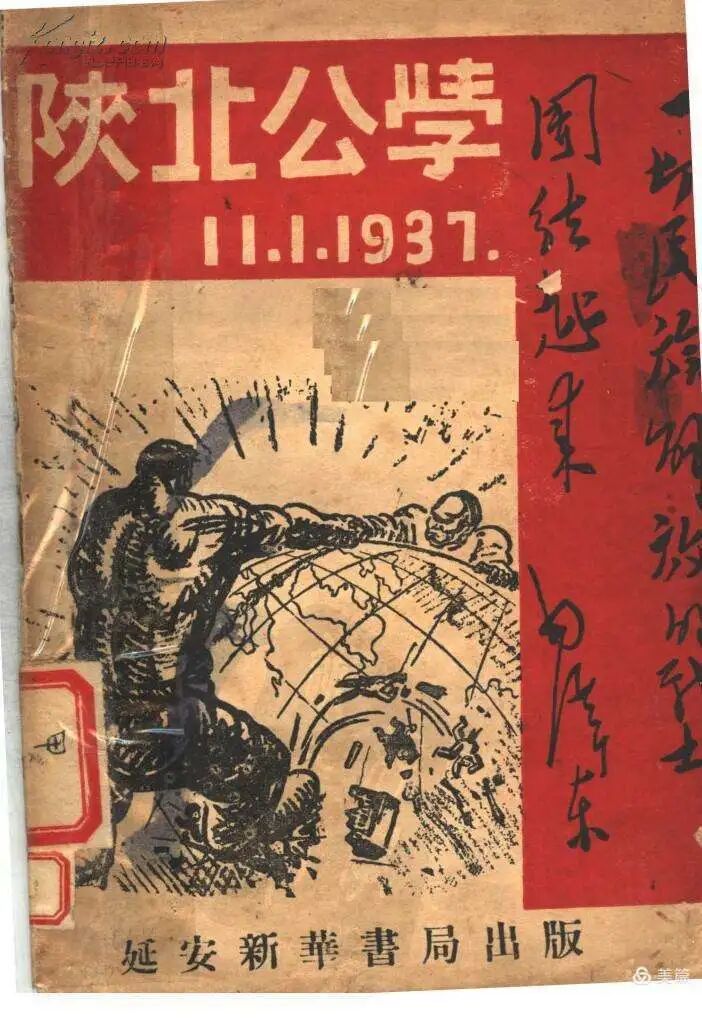 陝北公學
11.1.1937.
一切民族解放的战士
团结起来
毛泽东
延安新華書局出版
美篇